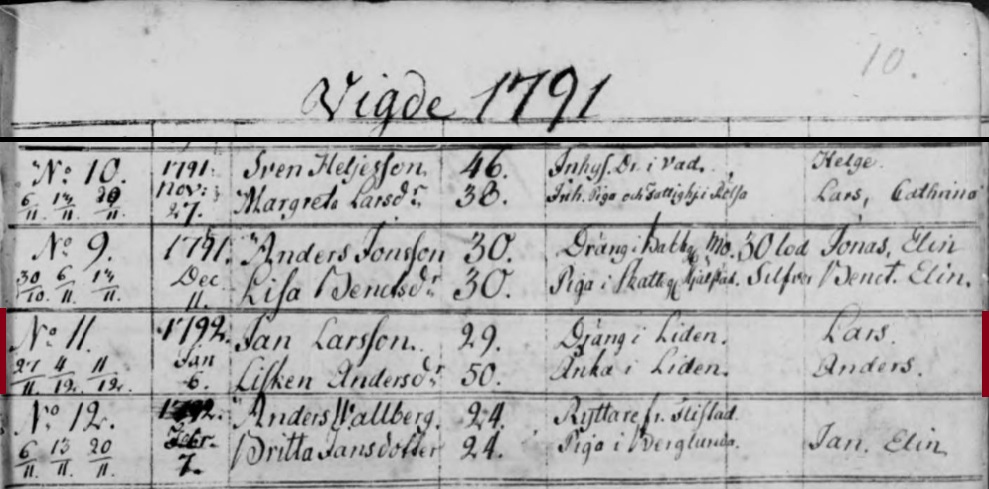 10.
Vigde 1791
No. 10. 1791. Sven Heljesson. 46. Inhys. Dr. i Vad. Helge.
6/11. 13/11. 20/11. Nov: 27. Margreta Larsdr. 38. Inh. Piga och Fattighj. i Lars, Cathrina
No. 9. 1791. Anders Jonsson 30. Dräng i Mo. 30 lod Jonas, Elin
30/10. 6/11. 13/11. Dec 11. Lisa Bendsdr. 30. Piga i Skatteg Silfver Bendt. Elin.
No. 11. 1792. Jan Larsson. 29. Dräng i Liden. Lars.
27/11. 4/12. 11/12. Jan 6. Lisken Andersdr. 50. Enka i Liden. Anders.
No. 12. 1792. Anders Wallberg. 24. Ryttare fr.
6/11. 13/11. 20/11. Febr. 7. Britta Jansdotter 24. Piga i Berglunda. Jan. Elin